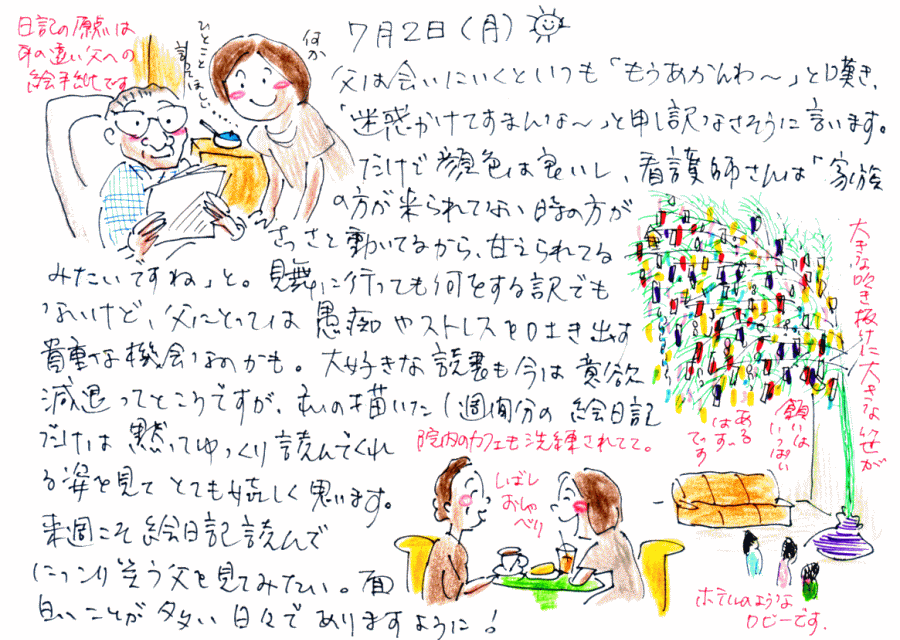 日記の原点は
耳の遠い父への
絵手紙です
何か
ひとこと
言ってほしい
7月2日(月)
父は会いにいくといつも「もうあかんわ〜」と嘆き、
「迷惑かけてすまんな〜」と申し訳なさそうに言います。
だけど顔色は良いし、看護師さんは「家族
の方が来られてない時の方が
さっさと動いてるから、甘えられてる
みたいですね」と。見舞に行っても何をする訳でも
ないけど、父にとっては愚痴やストレスを吐き出す
貴重な機会なのかも。大好きな読書も今は意欲
減退ってところですが、私の描いた1週間分の絵日記
だけは黙ってゆっくり読んでくれ
る姿を見てとても嬉しく思います。
来週こそ絵日記読んで
にっこり笑う父を見てみたい。面
白いことが多い日々でありますように!
大きな吹き抜けに大きな笹が
願いは
いっぱい
ある
はず
です
院内のカフェも洗練されてて。
しばし
おしゃ
べり
ホテルのような
ロビーです.